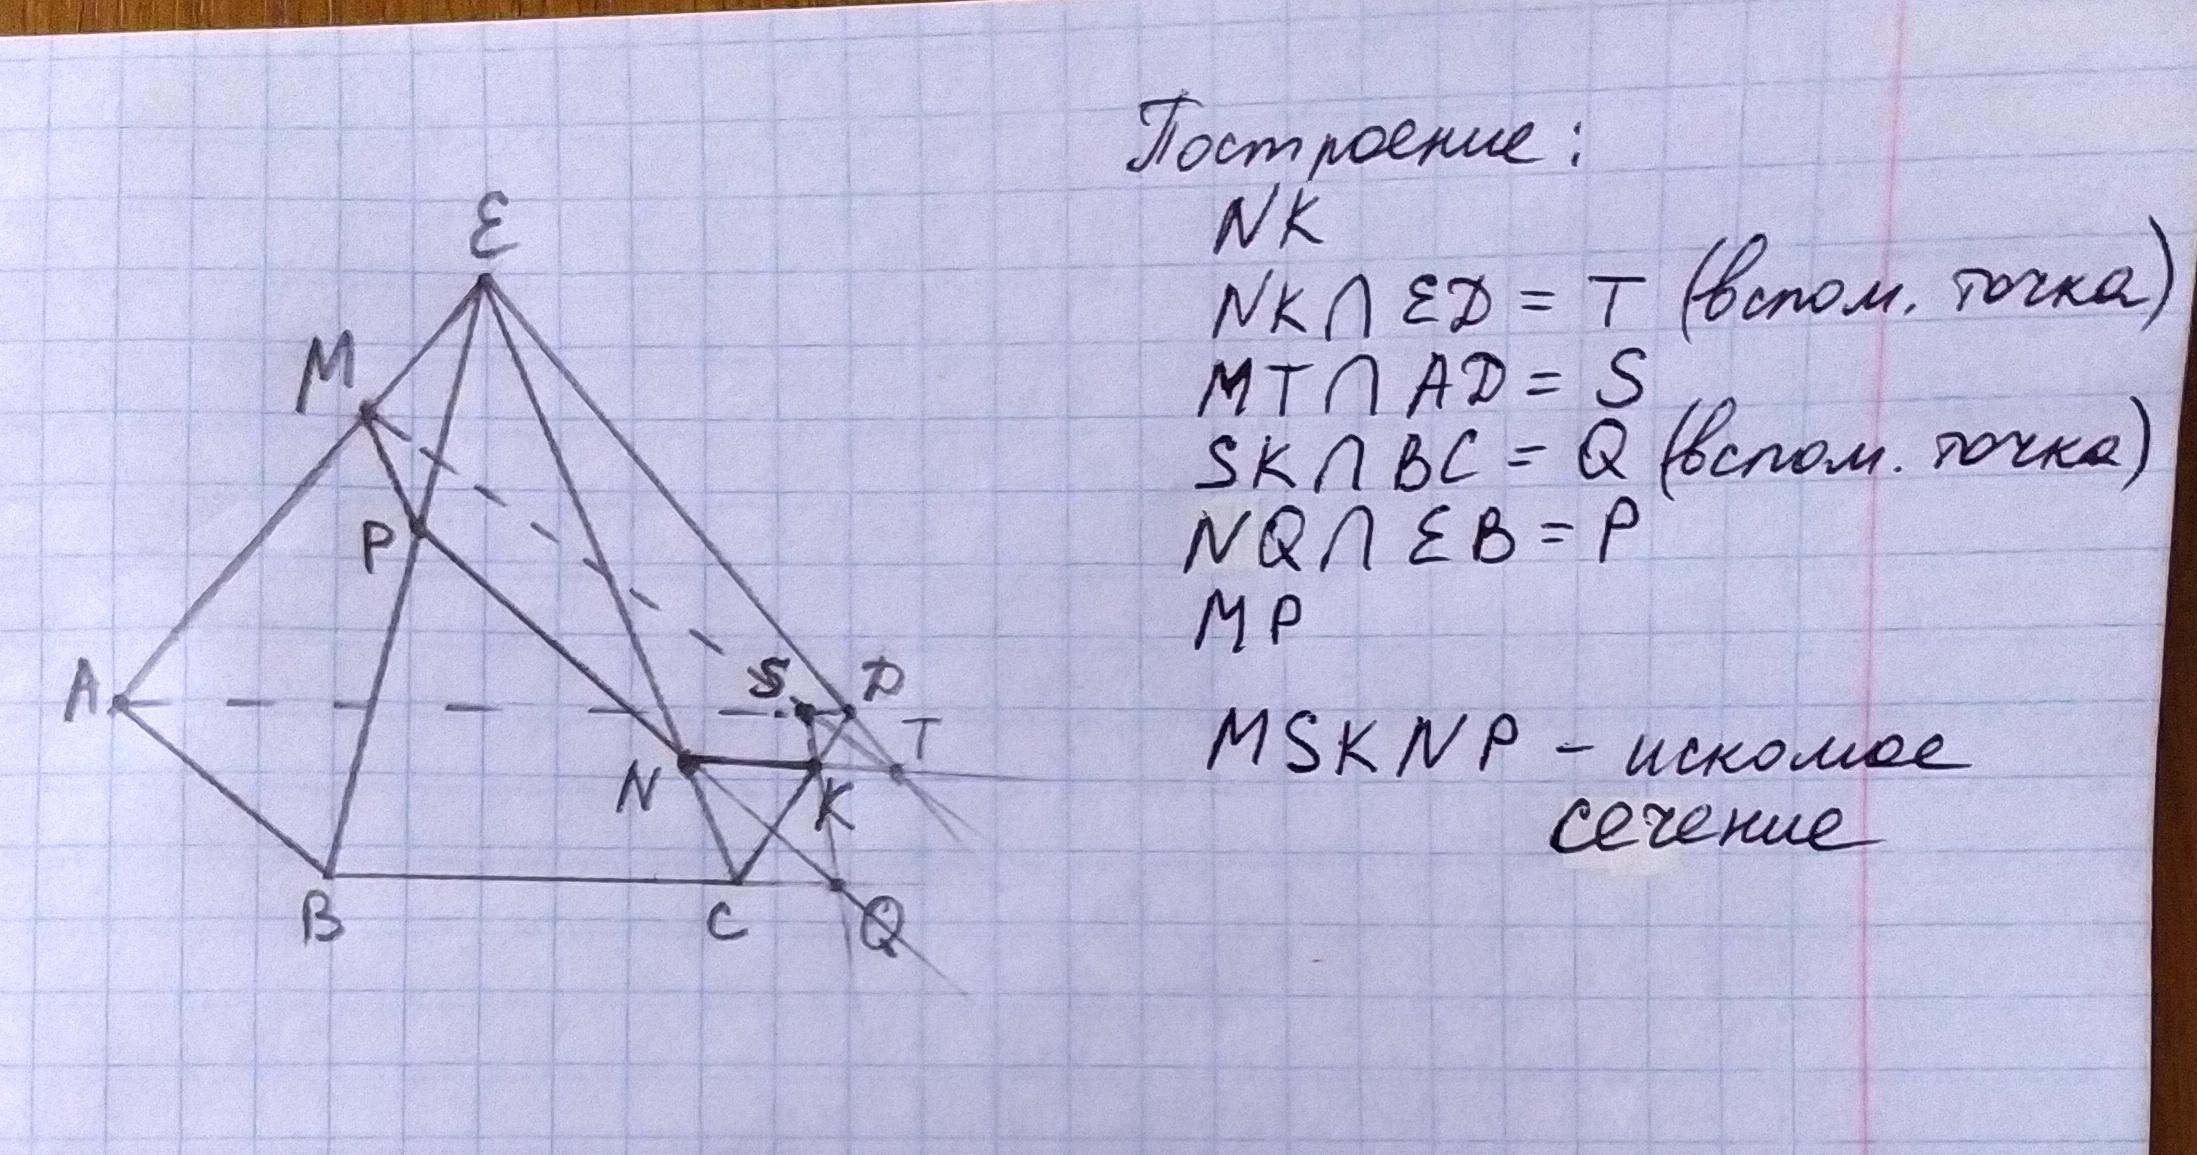 Построение:
NK
NK ∩ ED = T (вспом. точка)
MT ∩ AD = S
SK ∩ BC = Q (вспом. точка)
NQ ∩ EB = P
MP
MSKNP – искомое
сечение
E
M
P
A
S
D
T
N
K
B
C
Q